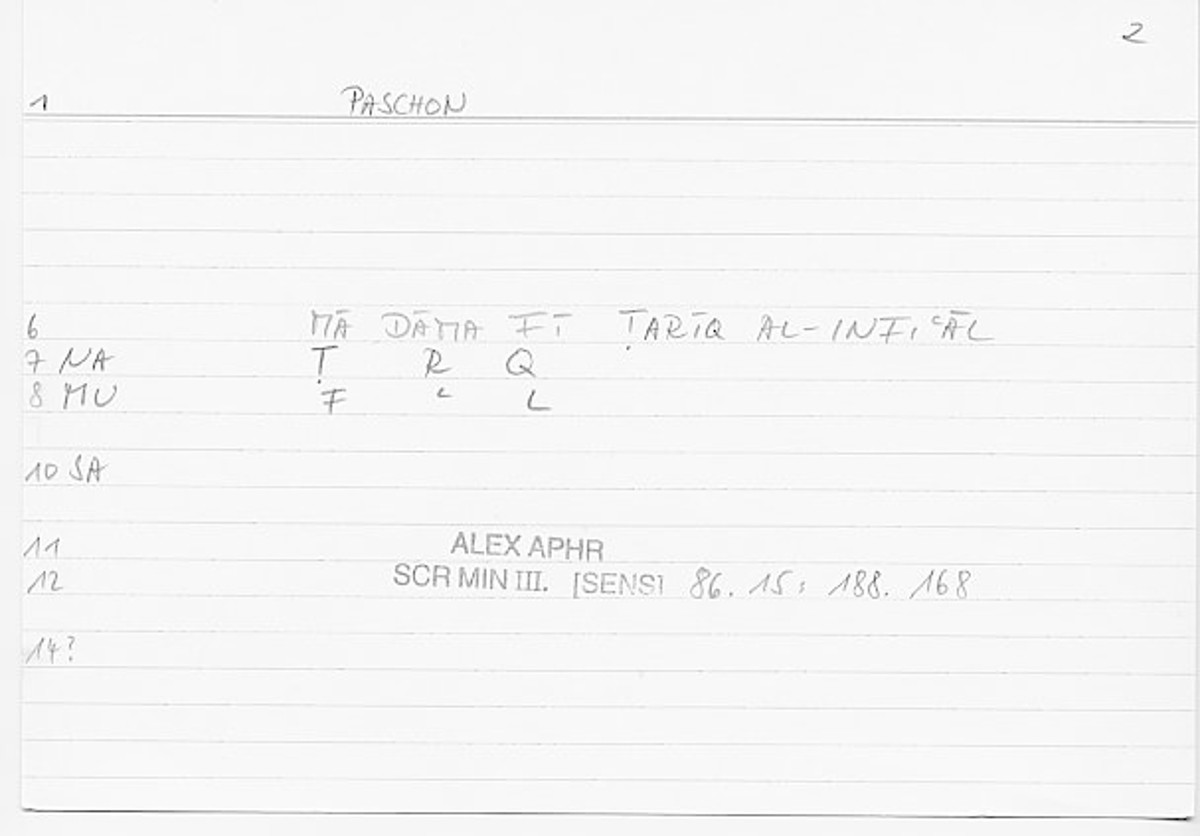 2
1 PASCHON
6 MĀ DĀMA FĪ ṬARĪQ AL-INFIʿĀL
7 NA Ṭ R Q
8 MU F ʿ L
10 SA
11 ALEX APHR
12 SCR MIN III. [SENS] 86. 15 : 188. 168
14?